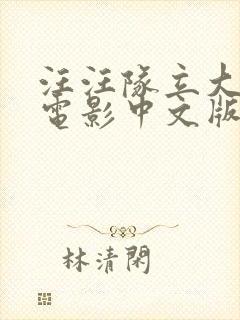 汪汪隊立大
電影中文版
林清閑